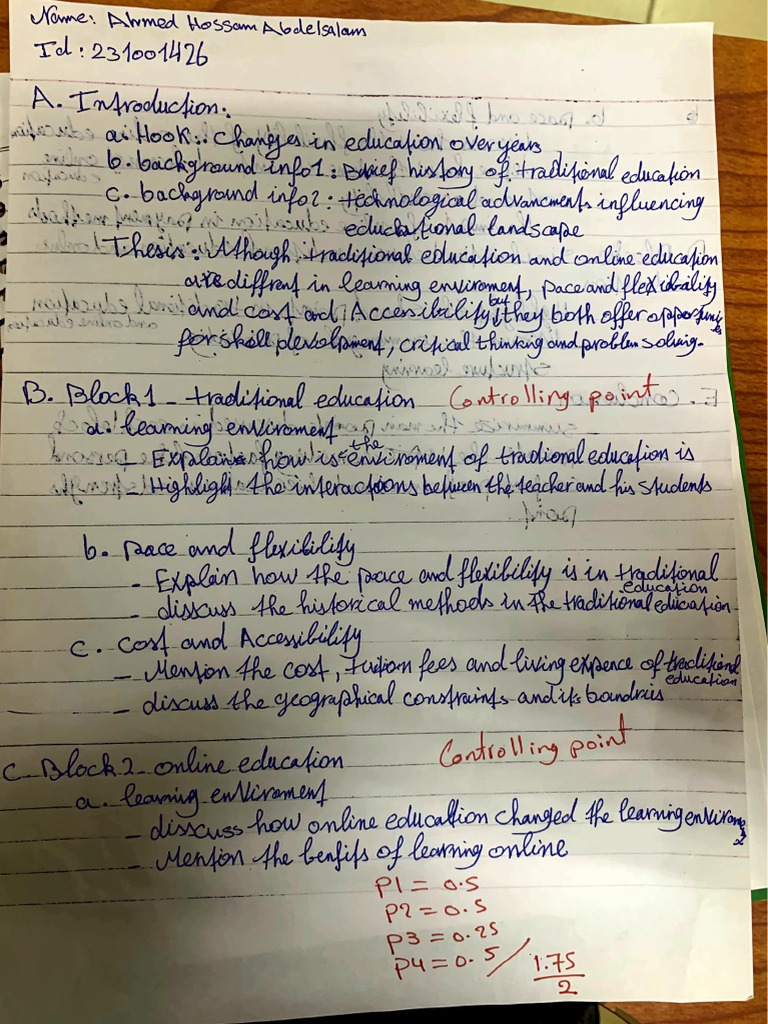 Name: Ahmed Hossam Abdelsalam
Id: 231001426
A. Introduction:
a. Hook: changes in education over years
b. background info1: Brief history of traditional education
c. background info2: technological advancments influencing
educational landscape
Thesis: Although traditional education and online education
are diffrent in learning enviroment, pace and flexibility
and cost and Accessibility, but they both offer opportunities
for skill development, critical thinking and problem solving.
B. Block1 - traditional education Controlling point
a. learning enviroment
- Explain how is the enviroment of tradional education is
- Highlight the interactions between the teacher and his students
b. pace and flexibility
- Explain how the pace and flexibility is in traditional
education
- disscuss the historical methods in the traditional education
c. cost and Accessibility
- Mention the cost, tution fees and living expence of traditional
education
- discuss the geographical constraints and its boundries
C. Block2 - online education Controlling point
a. learning enviroment
- disscuss how online education changed the learning enviroment
- Mention the benfits of learning online
P1 = 0.5
P2 = 0.5
P3 = 0.25
P4 = 0.5 / 1.75
2